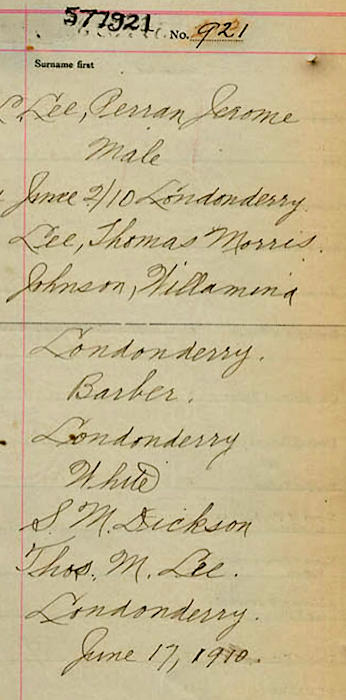 577921
No. 921
Surname first
Lee, Perran Jerome
Male
June 2/10 Londonderry.
Lee, Thomas Morris.
Johnson, Willamina
Londonderry.
Barber.
Londonderry
White
S. M. Dickson
Thos. M. Lee.
Londonderry.
June 17, 1910.